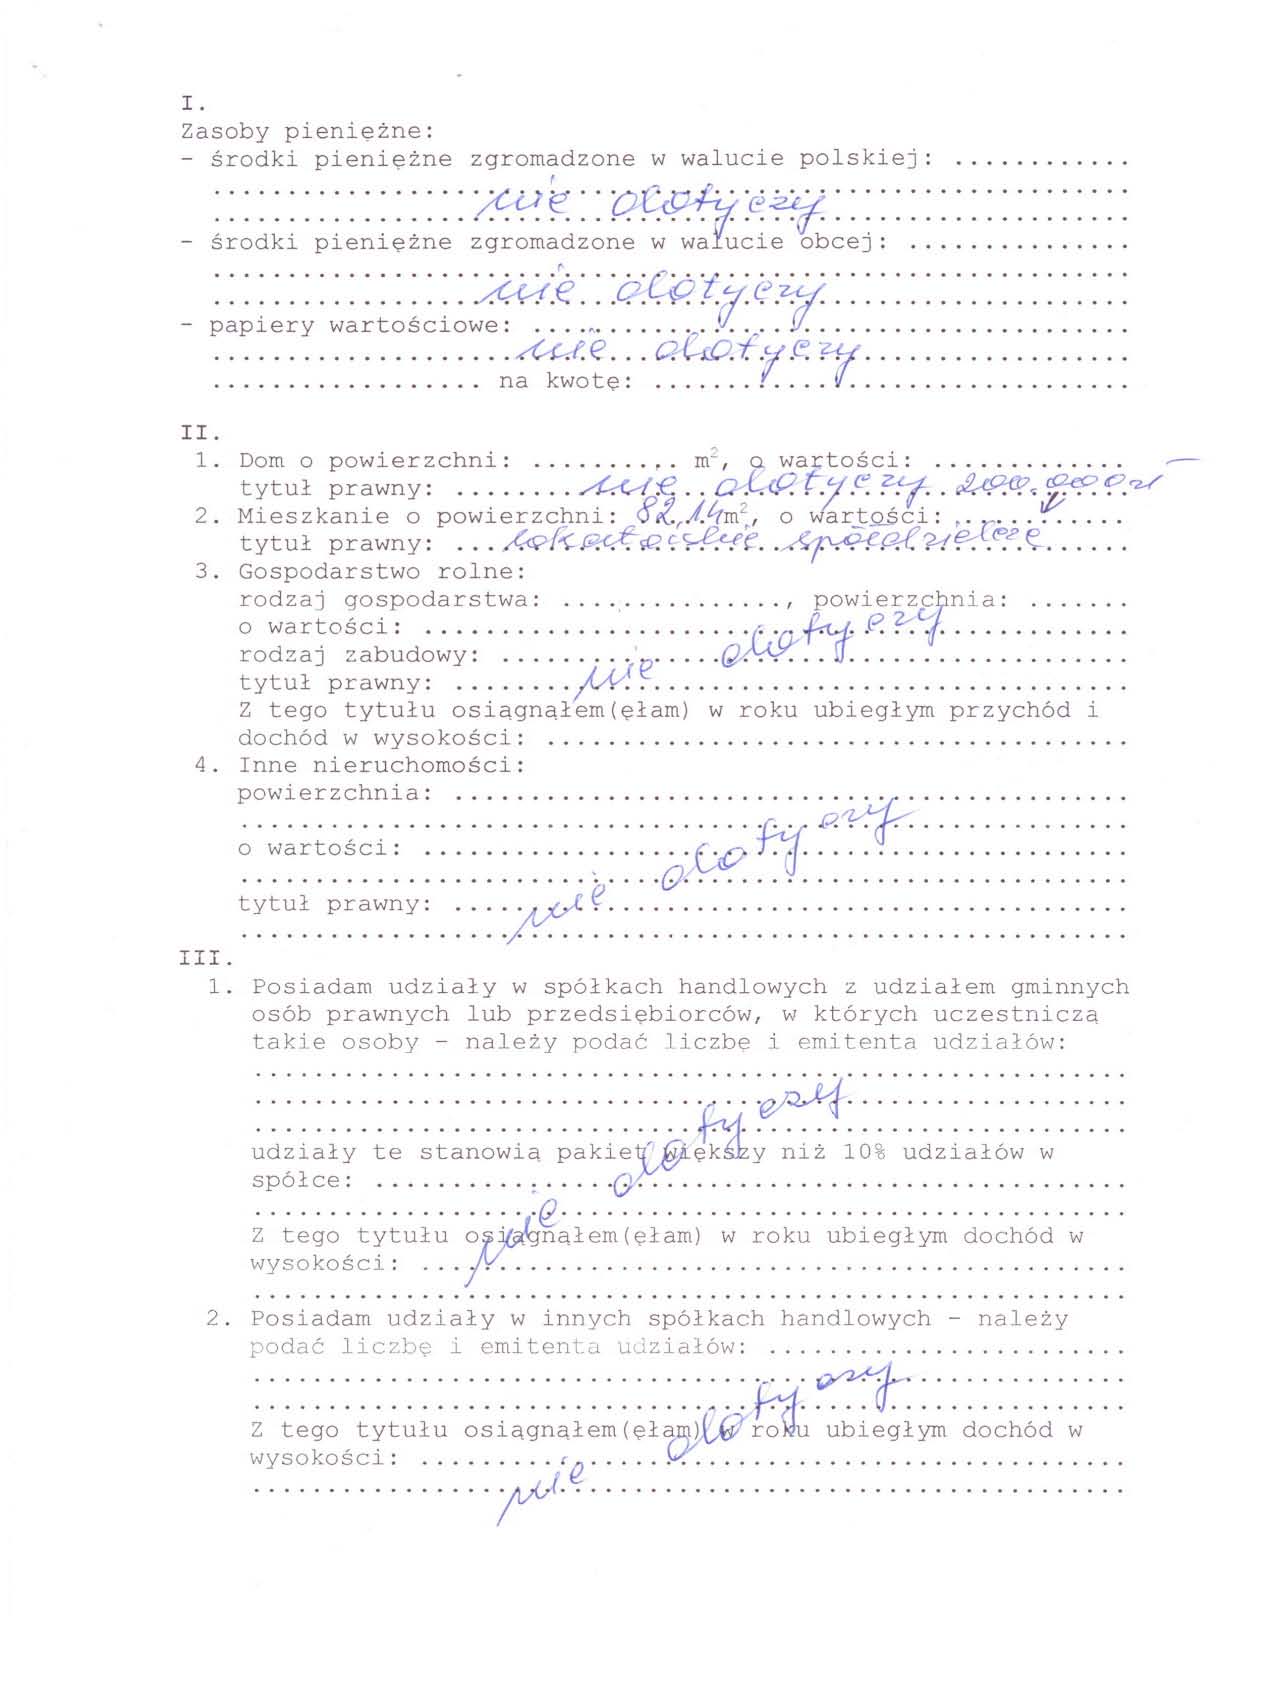 I.
Zasoby pieniężne:
- środki pieniężne zgromadzone w walucie polskiej: ............
nie dotyczy
- środki pieniężne zgromadzone w walucie obcej: ...............
nie dotyczy
- papiery wartościowe: ........................................
nie dotyczy
.................. na kwotę: ................................
II.
1. Dom o powierzchni: .......... m², o wartości: .............
tytuł prawny: nie dotyczy 200.000 zł
2. Mieszkanie o powierzchni: 82,14 m², o wartości: ............
tytuł prawny: lokatorskie spółdzielcze
3. Gospodarstwo rolne:
rodzaj gospodarstwa: ..............., powierzchnia: .......
o wartości: ...............................................
rodzaj zabudowy: nie dotyczy
tytuł prawny: .............................................
Z tego tytułu osiągnąłem(ęłam) w roku ubiegłym przychód i
dochód w wysokości: .......................................
4. Inne nieruchomości:
powierzchnia: .............................................
o wartości: nie dotyczy
tytuł prawny: .............................................
III.
1. Posiadam udziały w spółkach handlowych z udziałem gminnych
osób prawnych lub przedsiębiorców, w których uczestniczą
takie osoby - należy podać liczbę i emitenta udziałów:
nie dotyczy
udziały te stanowią pakiet większy niż 10% udziałów w
spółce: ..................................................
Z tego tytułu osiągnąłem(ęłam) w roku ubiegłym dochód w
wysokości: ...............................................
2. Posiadam udziały w innych spółkach handlowych - należy
podać liczbę i emitenta udziałów: ........................
nie dotyczy
Z tego tytułu osiągnąłem(ęłam) w roku ubiegłym dochód w
wysokości: ...............................................